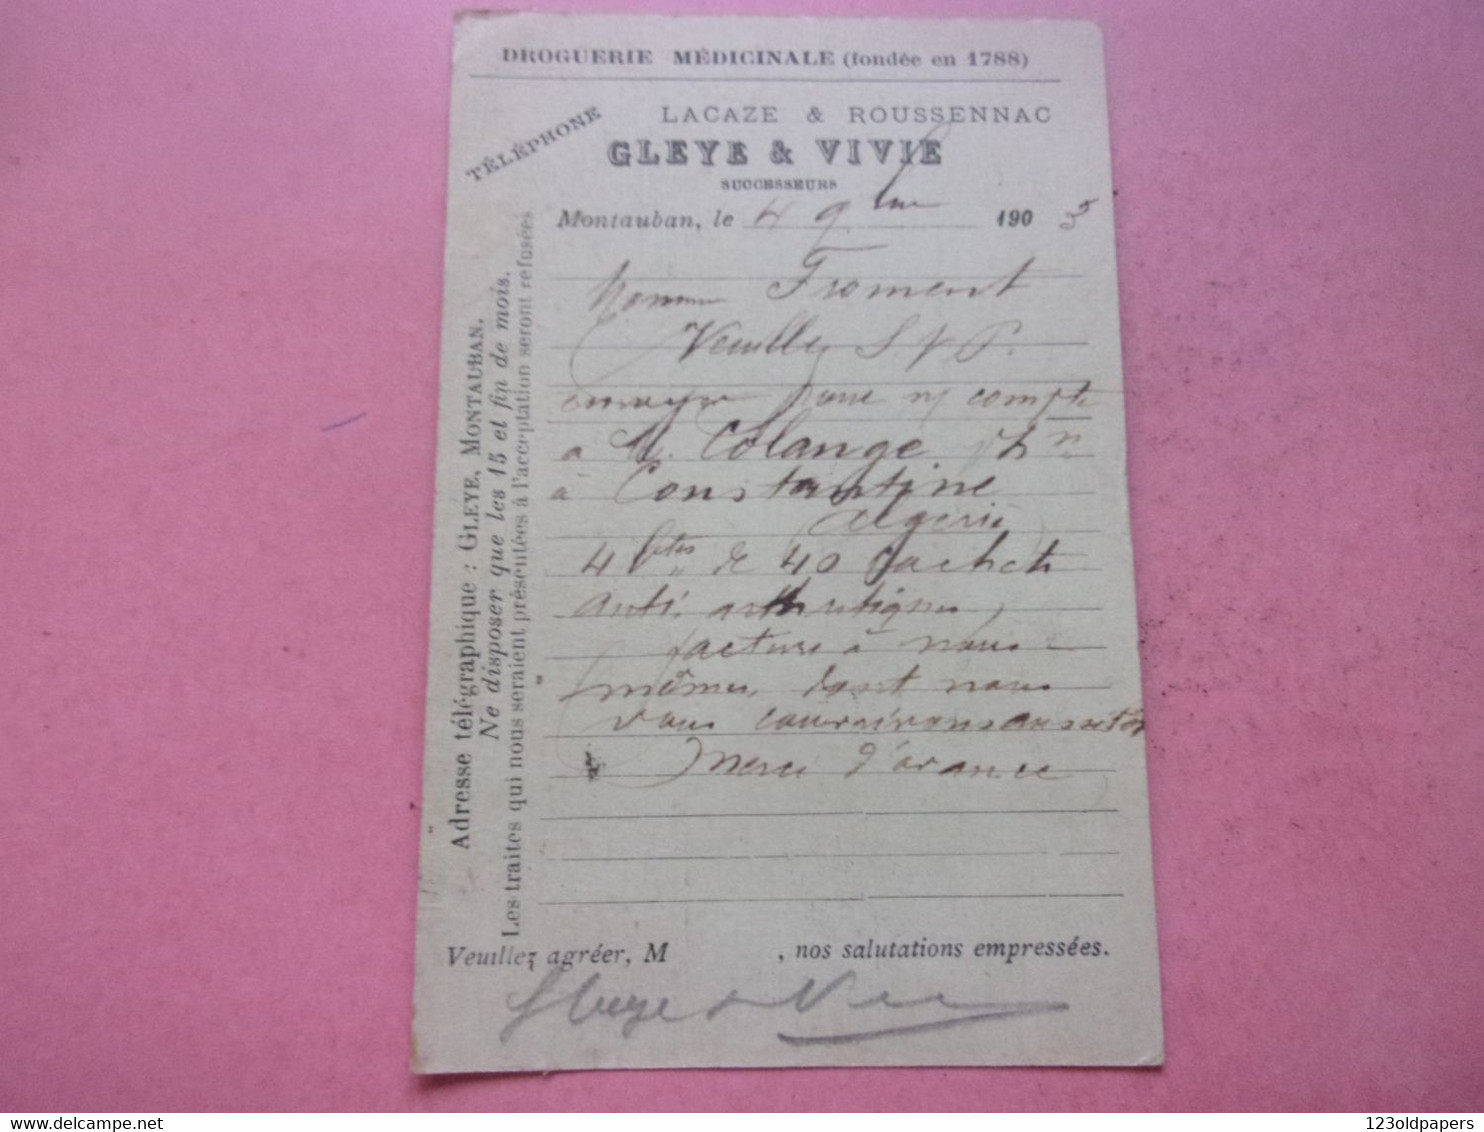 DROGUERIE MÉDICINALE (fondée en 1788)
TÉLÉPHONE
LACAZE & ROUSSENNAC
GLEYE & VIVIE
SUCCESSEURS
Montauban, le 4 9bre 1905
Monsieur Froment
Veuillez S. V. P.
envoyer pour n/ compte
a M. Colange phen
à Constantine
(Algérie)
4 btes de 40 Cachets
anti arthritiques
facture à nous
mêmes, dont nous
vous couvrirons aussitôt
Merci d'avance
Veuillez agréer, M , nos salutations empressées.
Gleye & Vivie
Adresse télégraphique : GLEYE, MONTAUBAN.
Ne disposer que les 15 et fin de mois.
Les traites qui nous seraient présentées à l'acceptation seront refusées
123oldpapers
delcampe.net